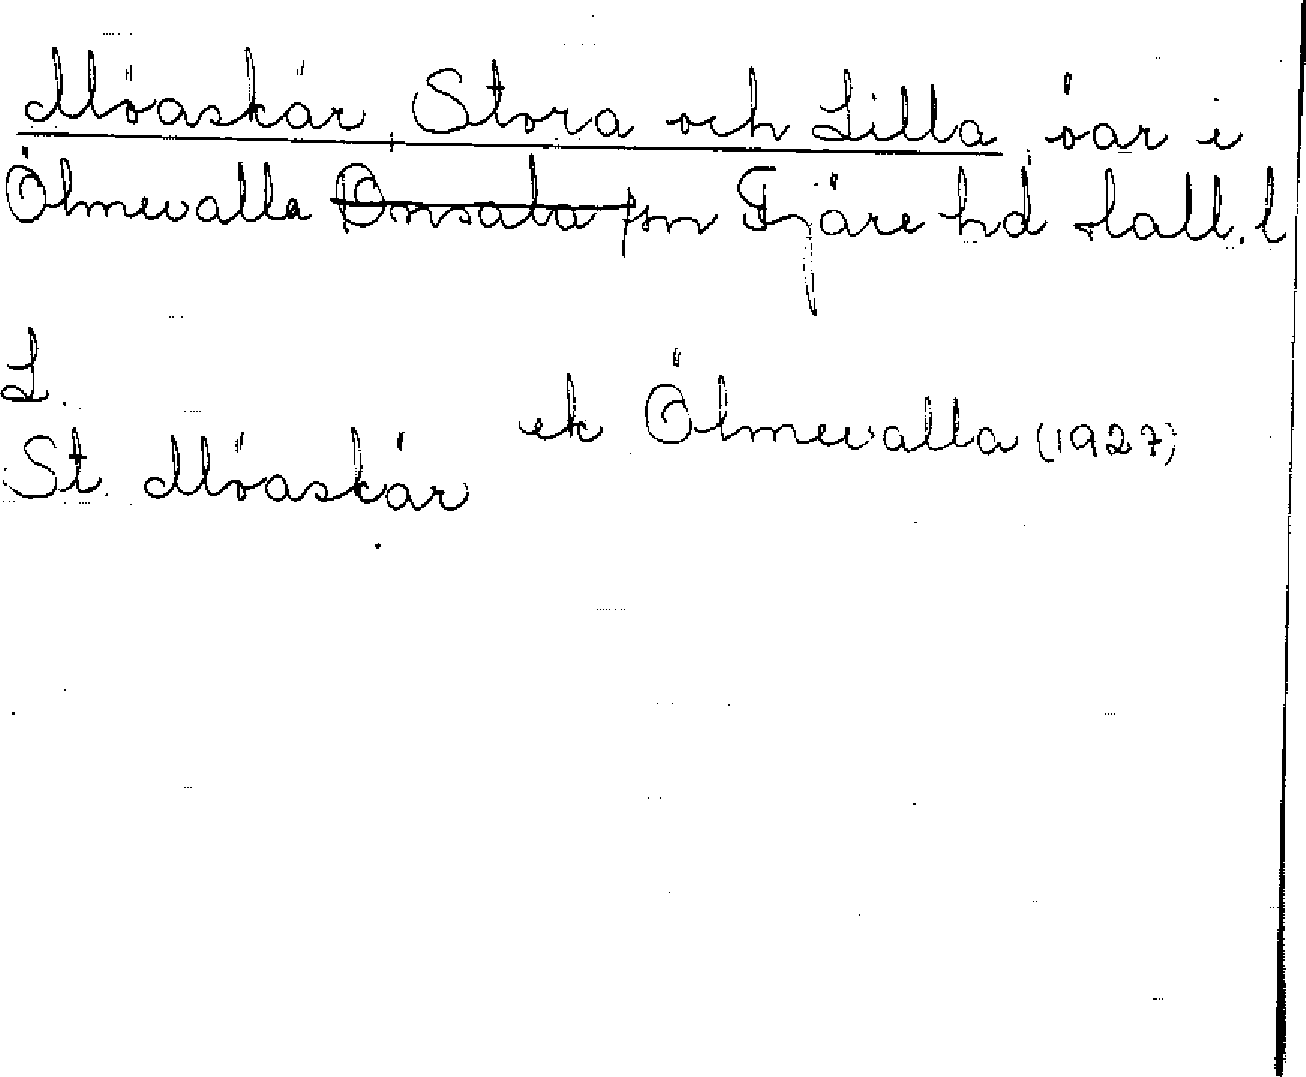 Möaskär, Stora och Lilla, öar i
Ölmevalla Onsala sn Fjäre hd Hall. l
L.
St. Möaskär
ek Ölmevalla (1927)